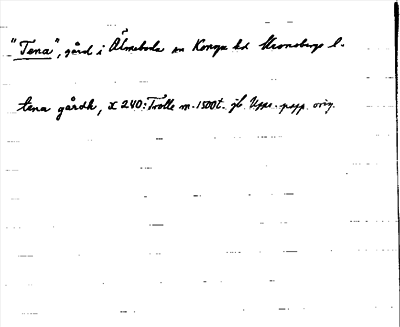 "Tena", gård i Älmeboda sn Konga hd Kronobergs l.
tena gårdh, x 240: Trolle m. 1500t. jb. Upps. papp. orig.